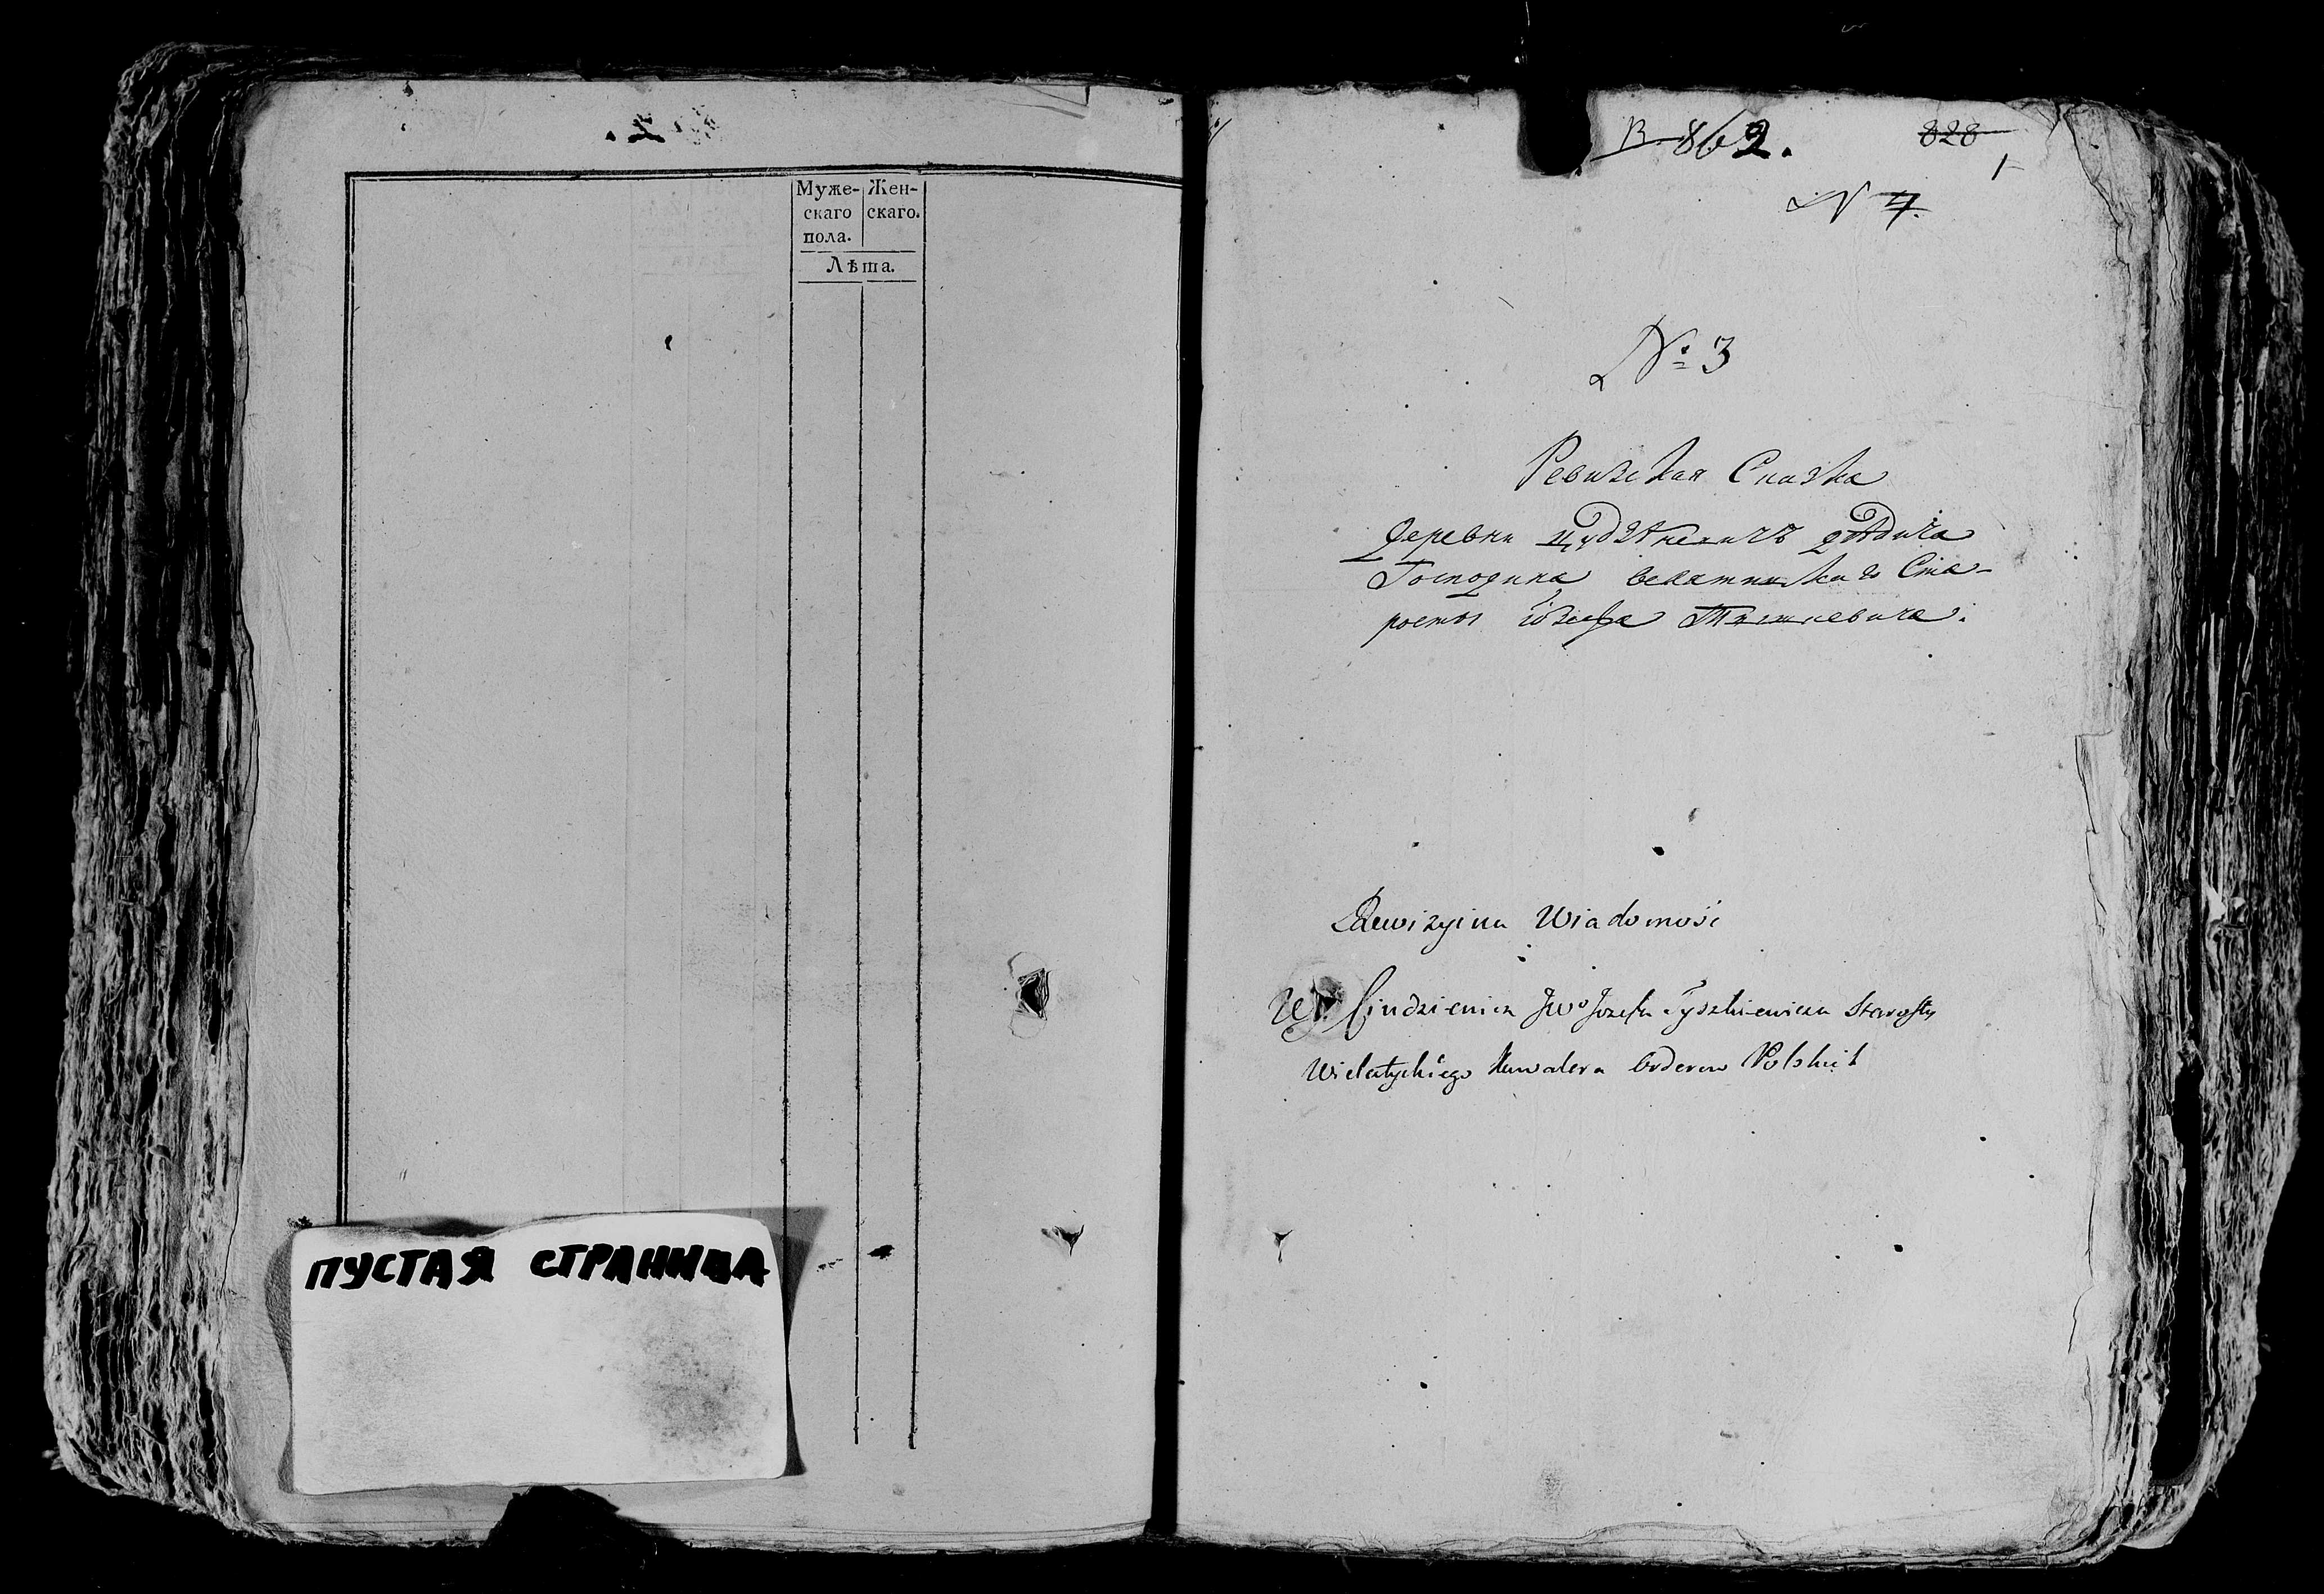 Муже-
скаго
пола.
Жен-
скаго.
Лѣта.
ПУСТАЯ СТРАНИЦА
862.
828
N 7.
№ 3
Ревизская Сказка
деревни дѣдича
Господина Велатицкаго Ста-
росты Іозефа Тишкевича.
Rewizyina Wiadomość
W. Cindzienicz Jwo Jozefa Tyszkiewicza Starosty
Wielatyckiego Kawalera Orderow Polskich